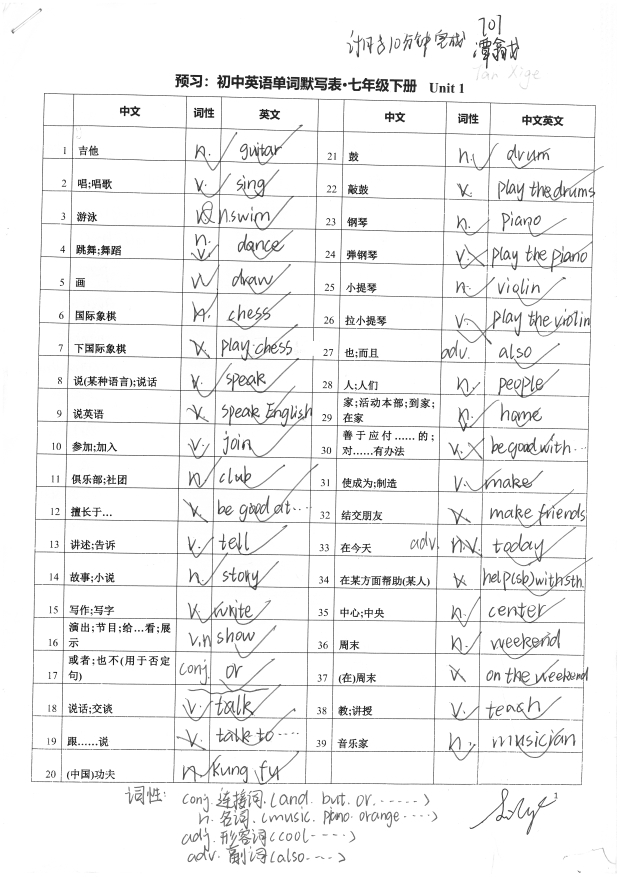 计时：10分钟完成
701
谭
Tan Xige
预习：初中英语单词默写表·七年级下册 Unit 1
中文 词性 英文 中文 词性 中文英文
1 吉他 n. guitar 21 鼓 n. drum
2 唱;唱歌 v. sing 22 敲鼓 v. play the drums
3 游泳 v&n swim 23 钢琴 n. piano
4 跳舞;舞蹈 n. v. dance 24 弹钢琴 v. play the piano
5 画 v. draw 25 小提琴 n. violin
6 国际象棋 n. chess 26 拉小提琴 v. play the violin
7 下国际象棋 v. play chess 27 也;而且 adv. also
8 说(某种语言);说话 v. speak 28 人;人们 n. people
9 说英语 v. speak English 29 家;活动本部;到家;在家 n. home
10 参加;加入 v. join 30 善于应付……的;对……有办法 v. be good with…
11 俱乐部;社团 n. club 31 使成为;制造 v. make
12 擅长于… be good at… 32 结交朋友 make friends
13 讲述;告诉 v. tell 33 在今天 adv. n. v. today
14 故事;小说 n. story 34 在某方面帮助(某人) help(sb)with sth
15 写作;写字 v. write 35 中心;中央 n. center
16 演出;节目;给…看;展示 v.n show 36 周末 n. weekend
17 或者;也不(用于否定句) conj. or 37 (在)周末 on the weekend
18 说话;交谈 v. talk 38 教;讲授 v. teach
19 跟……说 v. talk to…… 39 音乐家 n. musician
20 (中国)功夫 n. kung fu
词性: conj. 连接词.(and. but. or. ……)
n. 名词. (music. piano. orange. ……)
adj. 形容词(cool……)
adv. 副词(also……)
1